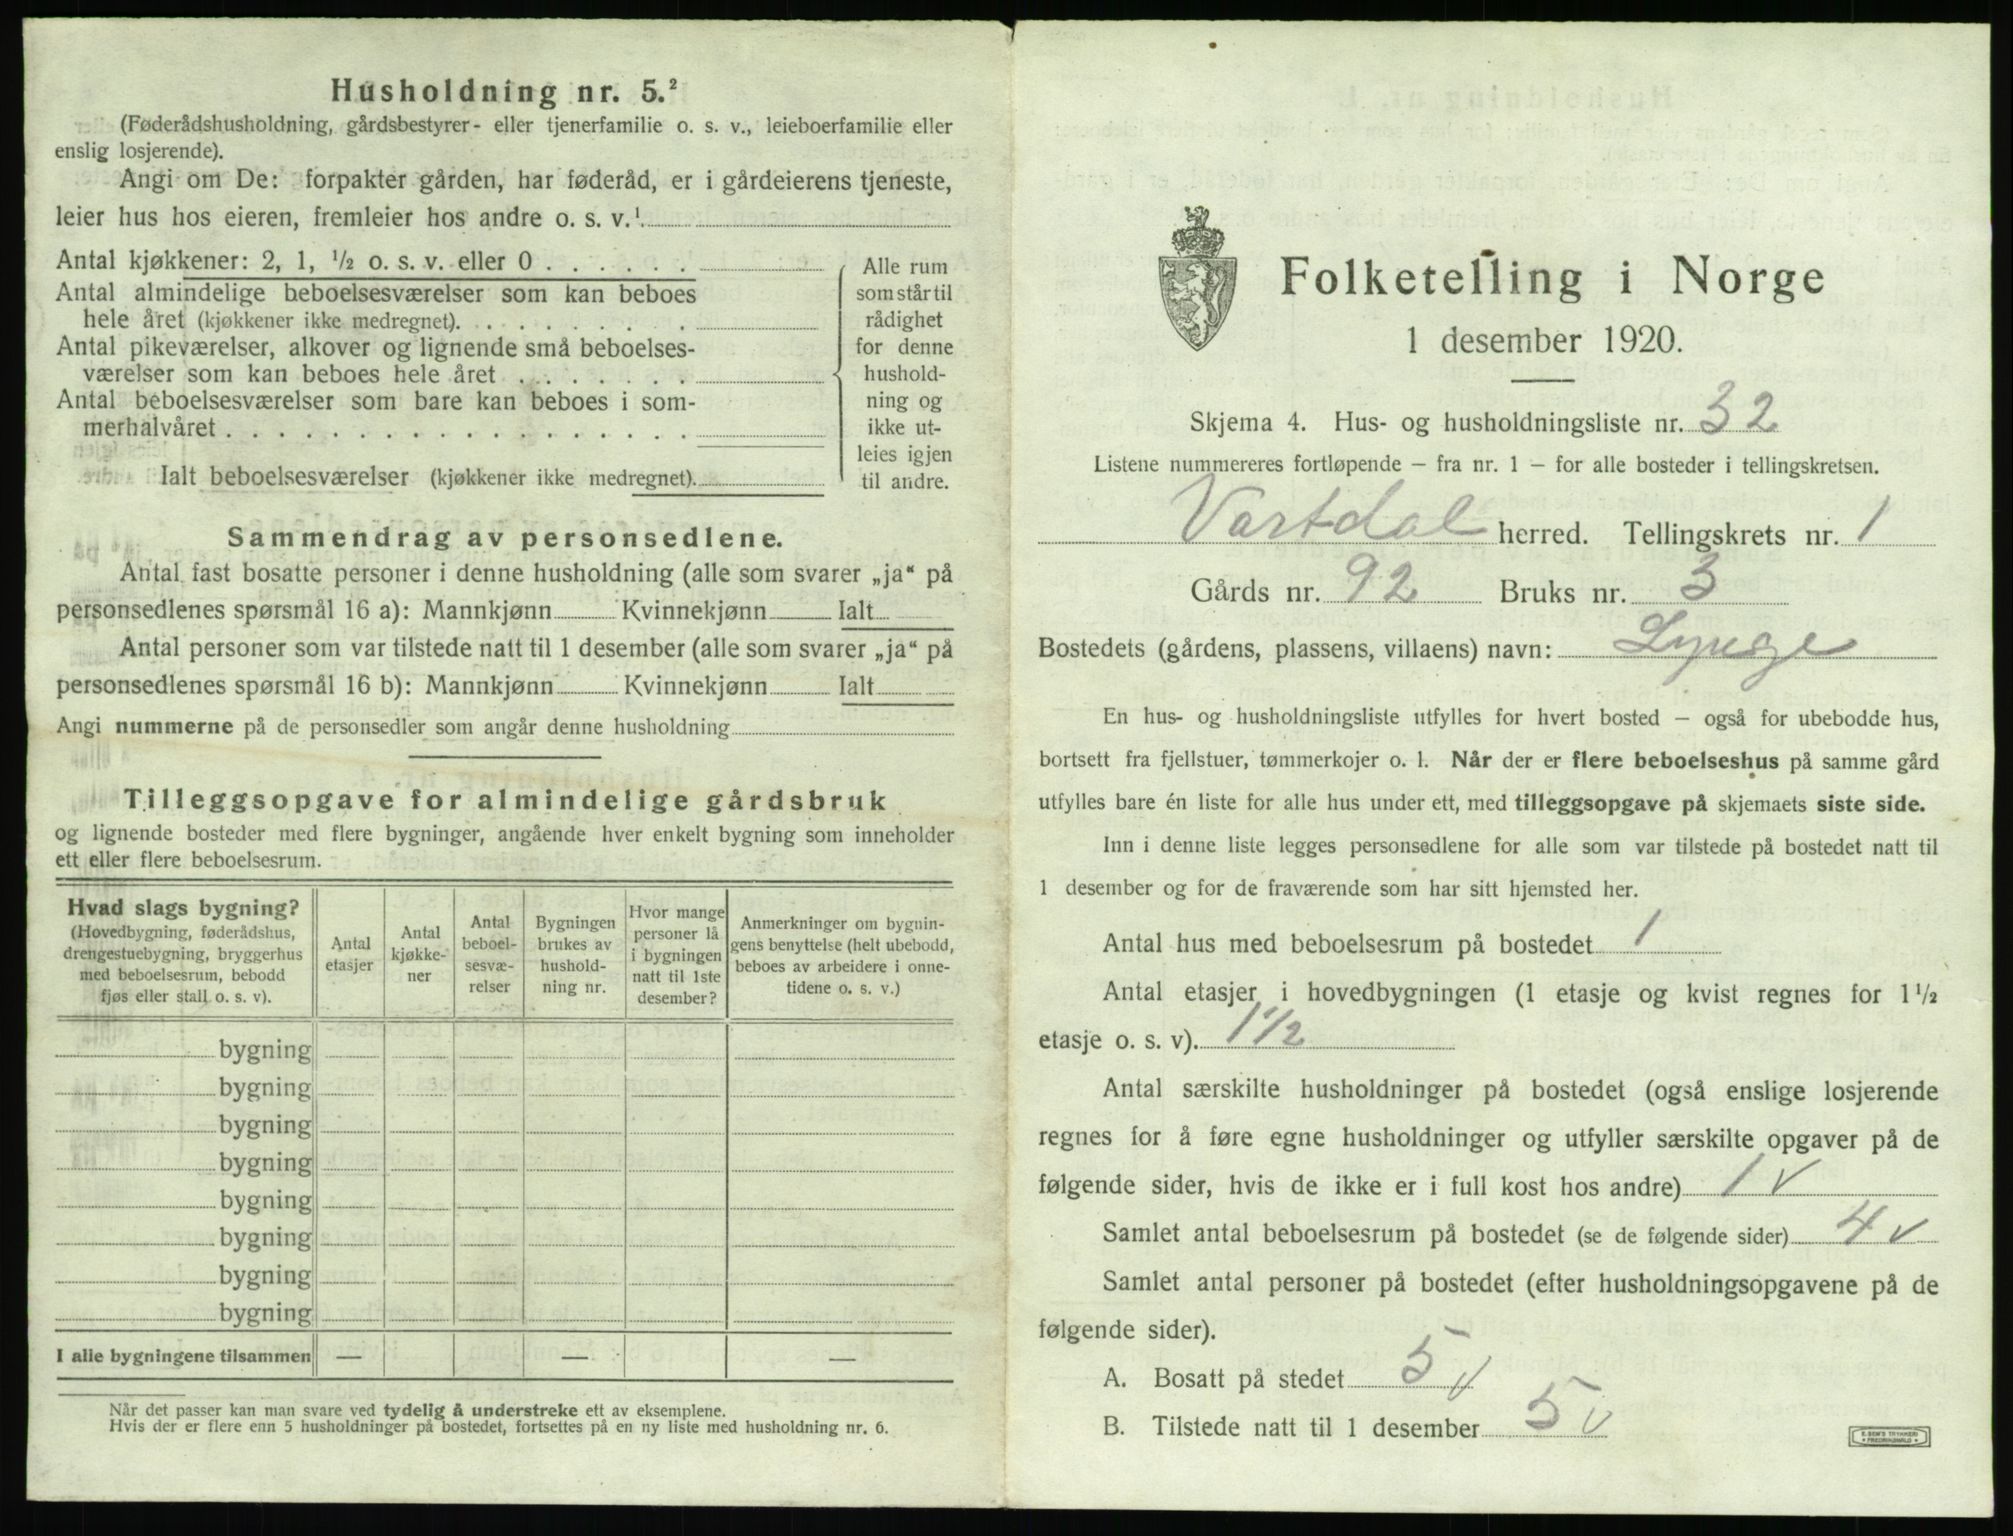 Husholdning nr. 5.²
(Føderådshusholdning, gårdsbestyrer- eller tjenerfamilie o. s. v., leieboerfamilie eller
enslig losjerende).
Angi om De: forpakter gården, har føderåd, er i gårdeierens tjeneste,
leier hus hos eieren, fremleier hos andre o. s. v.¹
Antal kjøkkener: 2, 1, ½ o. s. v. eller 0 . . . . . .
Antal almindelige beboelsesværelser som kan beboes
hele året (kjøkkener ikke medregnet). . . . . . . . .
Antal pikeværelser, alkover og lignende små beboelses-
værelser som kan beboes hele året . . . . . . .
Antal beboelsesværelser som bare kan beboes i som-
merhalvåret . . . . . . . . . . . . . . . . . .
Ialt beboelsesværelser (kjøkkener ikke medregnet).
Alle rum
som står til
rådighet
for denne
hushold-
ning og
ikke ut-
leies igjen
til andre.
Sammendrag av personsedlene.
Antal fast bosatte personer i denne husholdning (alle som svarer „ja“ på
personsedlenes spørsmål 16 a): Mannkjønn Kvinnekjønn Ialt
Antal personer som var tilstede natt til 1 desember (alle som svarer „ja“ på
personsedlenes spørsmål 16 b): Mannkjønn Kvinnekjønn Ialt
Angi nummerne på de personsedler som angår denne husholdning
Tilleggsopgave for almindelige gårdsbruk
og lignende bosteder med flere bygninger, angående hver enkelt bygning som inneholder
ett eller flere beboelsesrum.
Hvad slags bygning?
(Hovedbygning, føderådshus,
drengestuebygning, bryggerhus
med beboelsesrum, bebodd
fjøs eller stall o. s. v).
Antal
etasjer
Antal
kjøkke-
ner
Antal
beboel-
sesvæ-
relser
Bygningen
brukes av
hushold-
ning nr.
Hvor mange
personer lå
i bygningen
natt til 1ste
desember?
Anmerkninger om bygnin-
gens benyttelse (helt ubebodd,
beboes av arbeidere i onne-
tidene o. s. v.)
bygning
bygning
bygning
bygning
bygning
bygning
bygning
bygning
I alle bygningene tilsammen — — —
Når det passer kan man svare ved tydelig å understreke ett av eksemplene.
Hvis der er flere enn 5 husholdninger på bostedet, fortsettes på en ny liste med husholdning nr. 6.
Folketelling i Norge
1 desember 1920.
Skjema 4. Hus- og husholdningsliste nr. 32
Listene nummereres fortløpende – fra nr. 1 – for alle bosteder i tellingskretsen.
Vartdal herred. Tellingskrets nr. 1
Gårds nr. 92 Bruks nr. 3
Bostedets (gårdens, plassens, villaens) navn: Lynge
En hus- og husholdningsliste utfylles for hvert bosted – også for ubebodde hus,
bortsett fra fjellstuer, tømmerkojer o. l. Når der er flere beboelseshus på samme gård
utfylles bare én liste for alle hus under ett, med tilleggsopgave på skjemaets siste side.
Inn i denne liste legges personsedlene for alle som var tilstede på bostedet natt til
1 desember og for de fraværende som har sitt hjemsted her.
Antal hus med beboelsesrum på bostedet 1
Antal etasjer i hovedbygningen (1 etasje og kvist regnes for 1 ½
etasje o. s. v). 1 ½
Antal særskilte husholdninger på bostedet (også enslige losjerende
regnes for å føre egne husholdninger og utfyller særskilte opgaver på de
følgende sider, hvis de ikke er i full kost hos andre) 1 v
Samlet antal beboelsesrum på bostedet (se de følgende sider) 4 v
Samlet antal personer på bostedet (efter husholdningsopgavene på de
følgende sider).
A. Bosatt på stedet 5 v
B. Tilstede natt til 1 desember 5 v
E. SEM'S TRYKKERI
FREDRIKSHALD